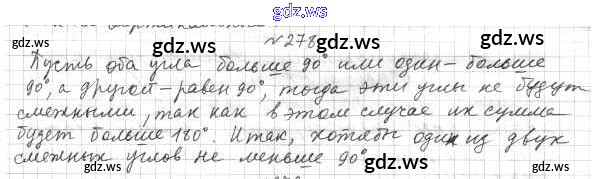 gdz.ws
№278
gdz.ws gdz.ws
Пусть оба угла больше 90° или один – больше
90°, а другой – равен 90°, тогда эти углы не будут
смежными, так как в этом случае их сумма
будет больше 180°. Итак, хотябы один из двух
смежных углов не меньше 90°
gdz.ws gdz.ws
gdz.ws